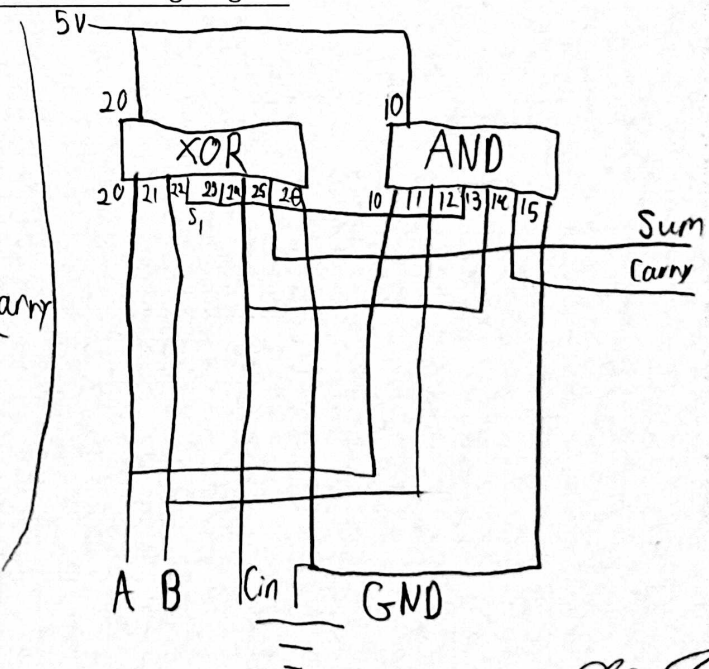 5V
20 10
XOR AND
20 21 22 23 24 25 26 10 11 12 13 14 15
S1
Sum
Carry
arry
A B Cin GND